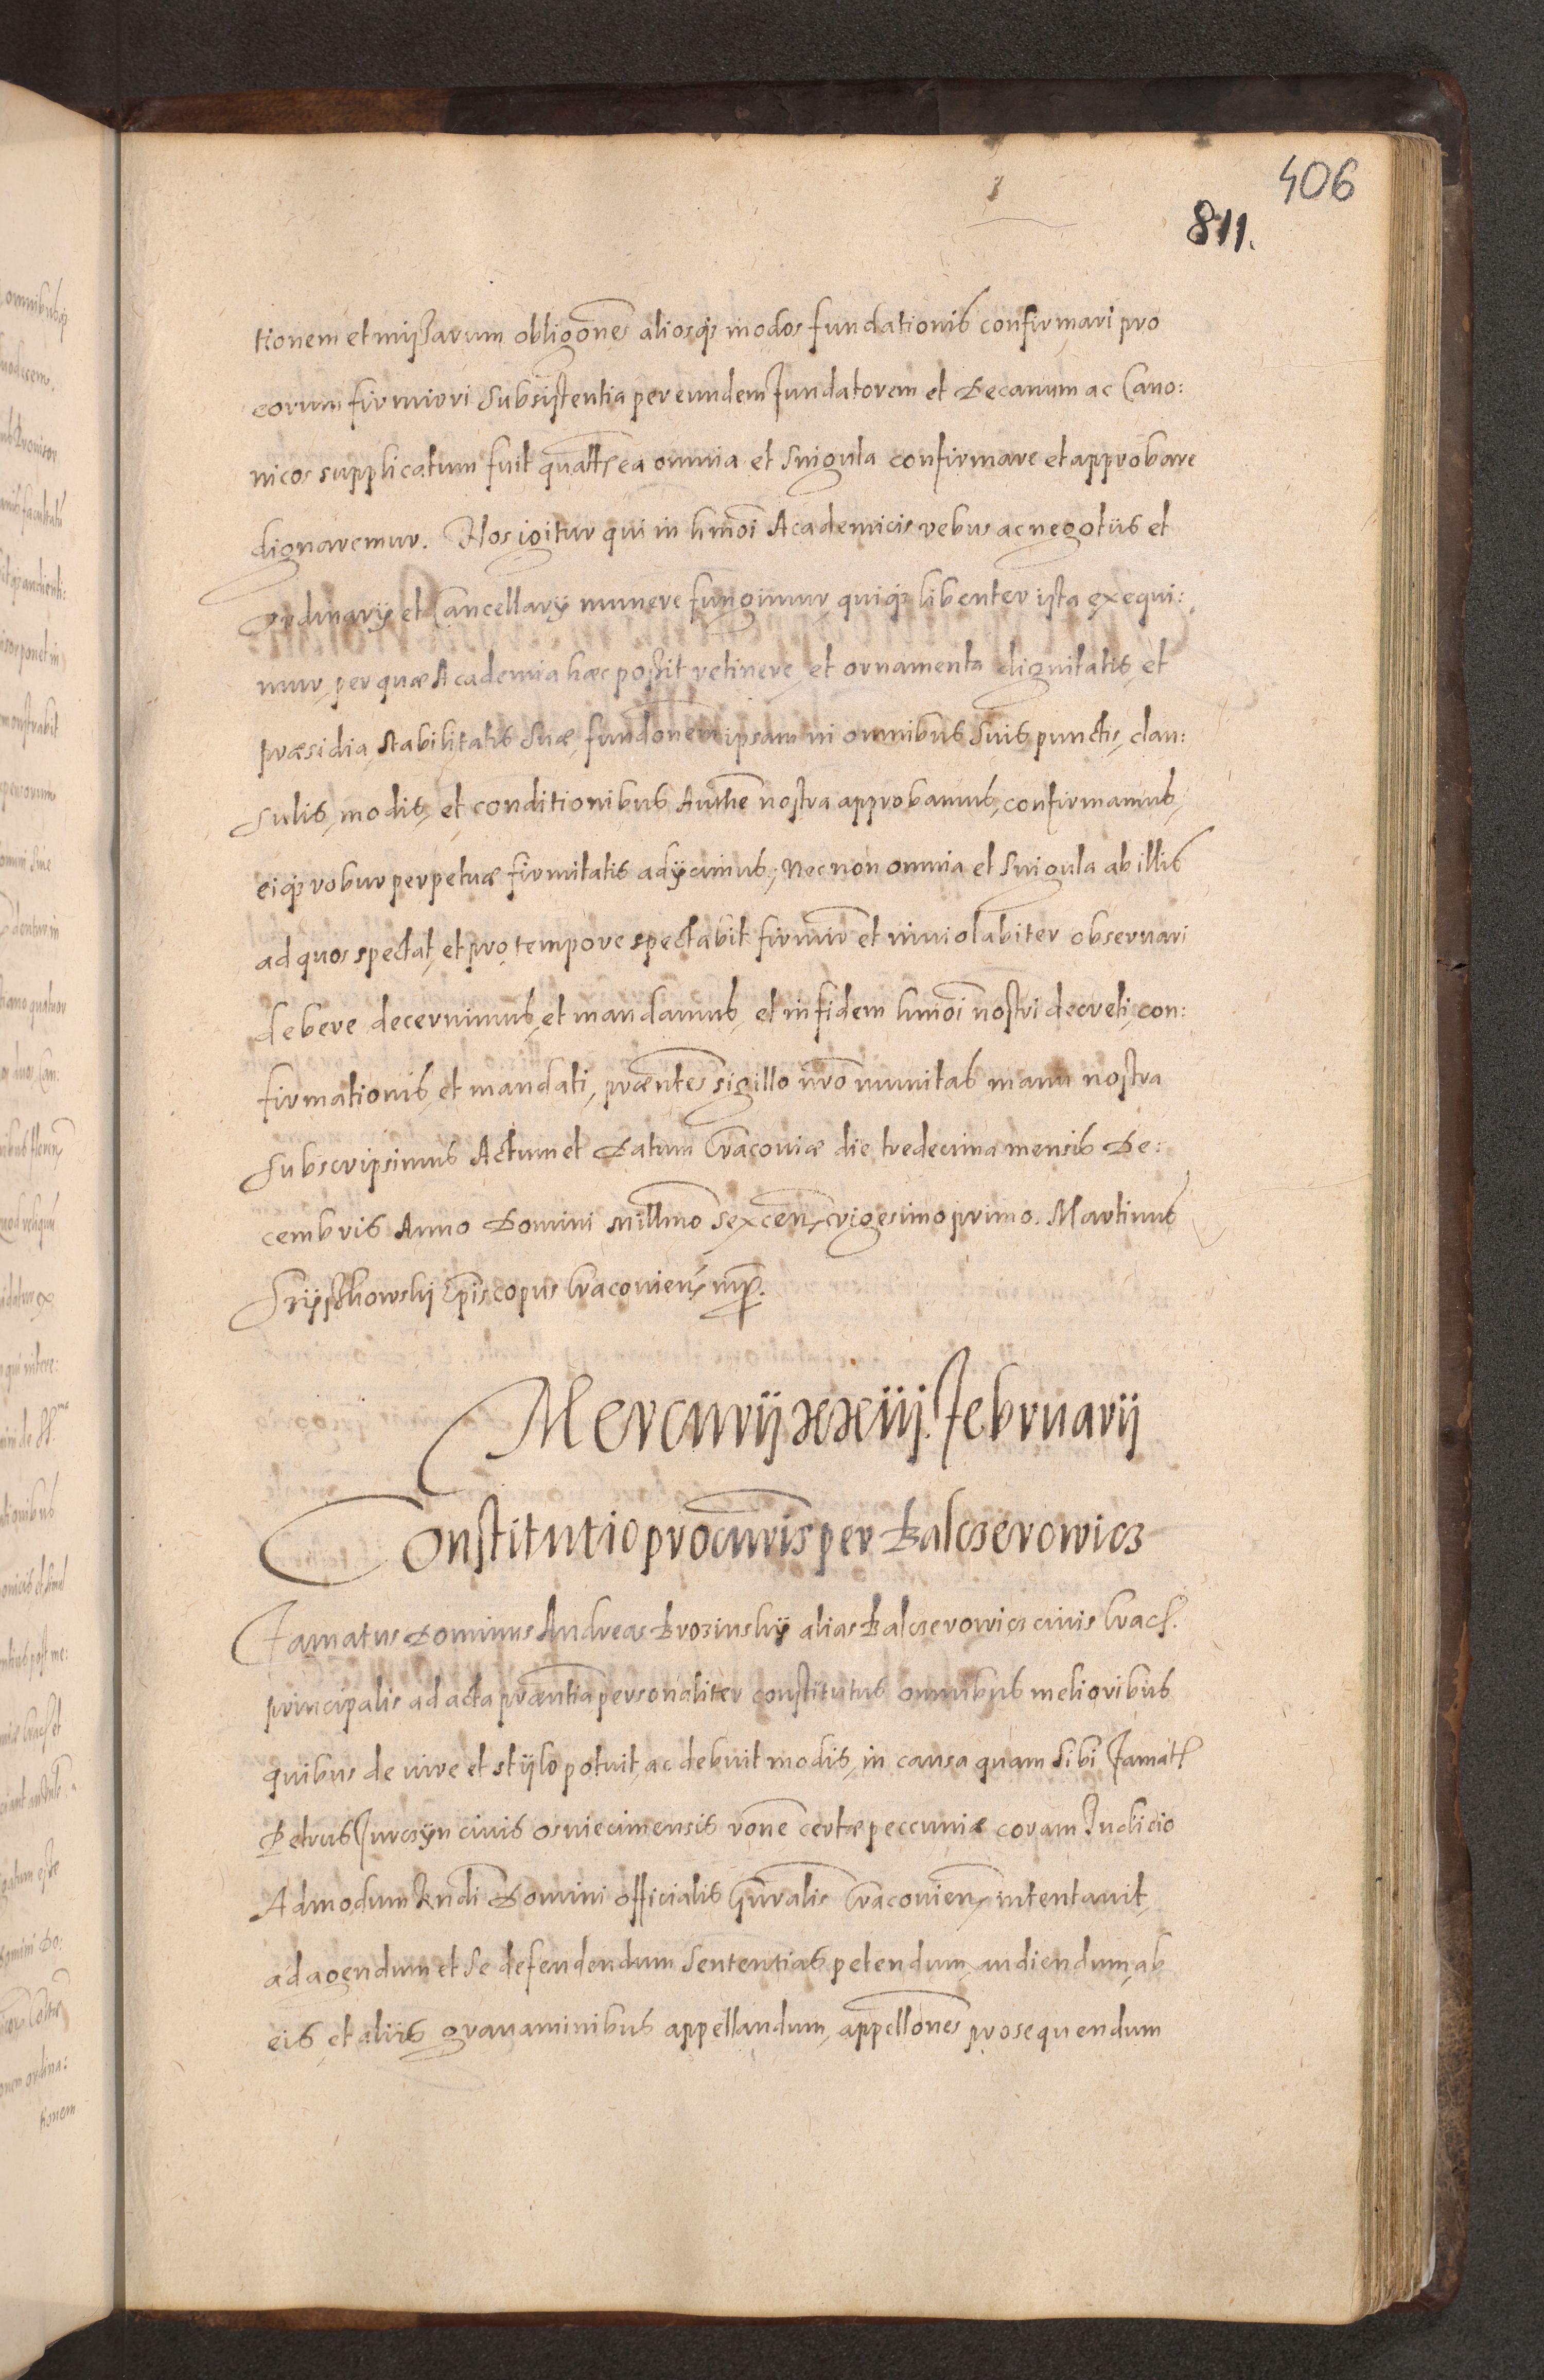 406
811.
tionem et missarum obligones aliosq modos fundationis confirmari pro
eorum firmiori subsistentia per eundem fundatorem et Decanum ac Cano:
nicos supplicatum fuit quatts ea omnia et singula confirmare et approbare
dignaremur. Nos igitur qui in hmoi Academicis rebus ac negotiis et
Ordinarij et Cancellarij munere fungimur, quiq libenter ista exequi:
mur, per quæ Academia hæc possit retinere, et ornamenta dignitatis, et
præsidia stabilitatis suæ, fundonem ipsam in omnibus suis punctis, clau:
sulis, modis, et conditionibus Authe nostra approbamus, confirmamus,
eiq robur perpetuæ firmitatis adijcimus, necnon omnia et singula ab illis
ad quos spectat, et pro tempore spectabit firmir et inuiolabiter obseruari
debere decernimus, et mandamus, et in fidem hmoi nostri decreti, con:
firmationis, et mandati, præntes sigillo nro munitas manu nostra
subscripsimus Actum et Datum Cracouiæ die tredecima mensis De:
cembris Anno Domini millmo sexcen, vigesimo primo. Martinus
Szyszkowskij Episcopus Cracouien, mp.
Mercurij xxiij. Februarij
Constitutio procuris per Balczerowicz
Famatus Dominus Andreas Brozinskij alias Balczerowicz ciuis Crac.
principalis ad acta præntia personaliter constitutus omnibus melioribus
quibus de iure et stijlo potuit, ac debuit modis, in causa quam sibi Famatt
Petrus Jurczijn ciuis osuiecimensis rone certæ peccuniæ coram Iudicio
Admodum Rndi Domini officialis Gnralis Cracouien, intentauit,
ad agendum et se defendendum sententias petendum, audiendum, ab
eis, et aliis grauaminibus appellandum, appellones prosequendum